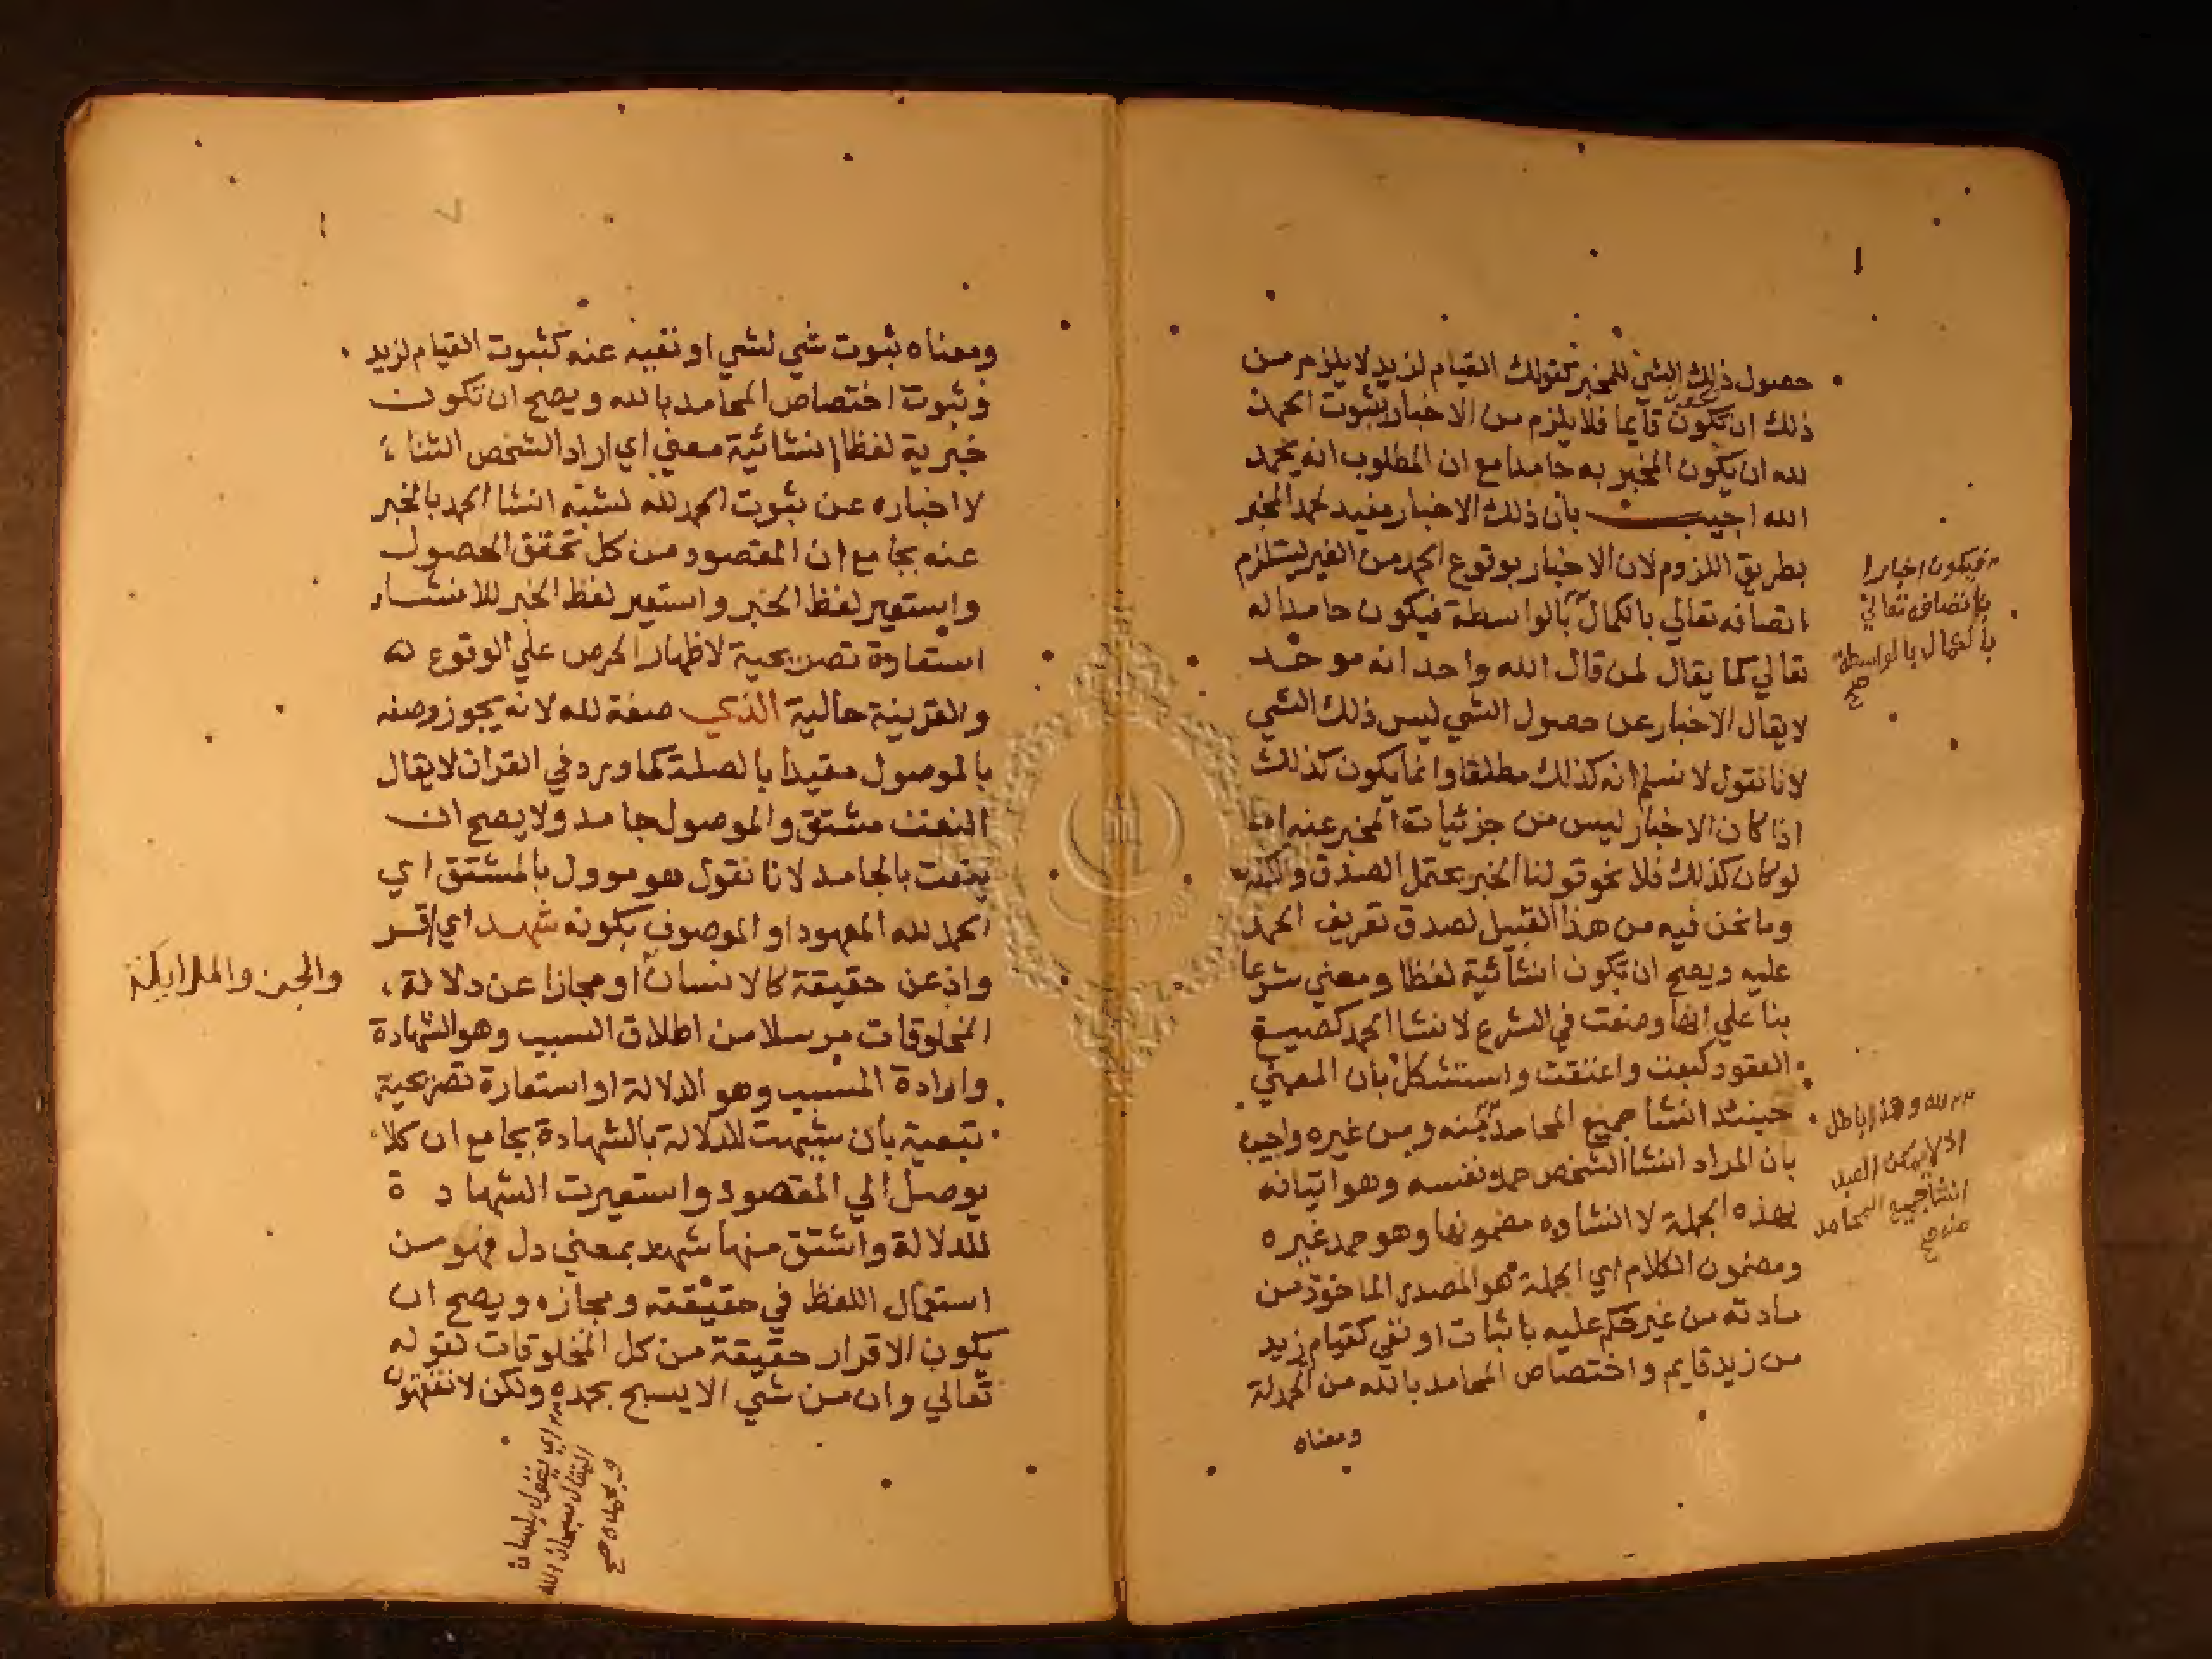 حصول ذلك الشي للمخبر كقولك القيام لزيد لا يلزم من
ذلك ان تكون قايما فلا يلزم من الاخبار بثبوت الحمد
لله ان يكون المخبر به حامدا مع ان المطلوب انه يحمد
الله اجيب بان ذلك الاخبار مفيد لحمد المخبر
بطريق اللزوم لان الاخبار بوقوع الحمد من الغير يستلزم
اتصافه تعالي بالكمال بالواسطة فيكون حامدا له
تعالي كما يقال لمن قال الله واحد انه موحد
لا يقال الاخبار عن حصول الشي ليس ذلك الشي
لانا نقول لا نسلم انه كذلك مطلقا وانما يكون كذلك
اذا كان الاخبار ليس من جزئيات المخبر عنه اما
لو كان كذلك فلا نحو قولنا الخبر يحتمل الصدق والكذب
وما نحن فيه من هذا القبيل لصدق تعريف الحمد
عليه ويصح ان تكون انشائية لفظا ومعني شرعا
بنا علي انها وضعت في الشرع لانشا الحمد كصيغ
العقود كبعت واعتقت واستشكل بان المعني
حينئذ انشا جميع المحامد منه ومن غيره واجيب
بان المراد انشا الشخص حمد نفسه وهو اتيانه
بهذه الجملة لا انشاوه مضمونها وهو حمد غيره
ومضمون الكلام اي الجملة هو المصدر الماخوذ من
مادته من غير حكم عليه باثبات او نفي كقيام زيد
من زيد قايم واختصاص المحامد بالله من الحمدلة
ومعناه
فيكون اخبارا
باتصافه تعالي
بالكمال بالواسطة
صح
لله وهذا باطل
اذ لا يمكن العبد
انشا جميع المحامد
منه صح
ومعناه ثبوت شي لشي او نفيه عنه كثبوت القيام لزيد
وثبوت اختصاص المحامد بالله ويصح ان تكون
خبرية لفظا انشائية معني اي اراد الشخص الثناء
لا اخباره عن ثبوت الحمد لله لشبه انشا الحمد بالخبر
عنه بجامع ان المقصود من كل تحقق الحصول
واستعير لفظ الخبر واستعير لفظ الخبر للانشاء
استعارة تصريحية لاظهار الحرص علي الوقوع
والقرينة حالية الذي صفة لله لانه يجوز وصفه
بالموصول مقيدا بالصلة كما ورد في القران لا يقال
النعت مشتق والموصول جامد ولا يصح ان
ينعت بالجامد لانا نقول هو موول بالمشتق اي
الحمد لله المعهود او الموصوف بكونه شهد اي اقر
واذعن حقيقة كالانسان او مجازا عن دلالة
المخلوقات مرسلا من اطلاق السبب وهو الشهادة
وارادة المسبب وهو الدلالة او استعارة تصريحية
تبعية بان شبهت الدلالة بالشهادة بجامع ان كلا
يوصل الي المقصود واستعيرت الشهادة
للدلالة واشتق منها شهد بمعني دل فهو من
استعمال اللفظ في حقيقته ومجازه ويصح ان
يكون الاقرار حقيقة من كل المخلوقات لقوله
تعالي وان من شي الا يسبح بحمده ولكن لا تفقهون
والجن والملايكة
اي يقول بلسان
المقال سبحان الله
وبحمده صح